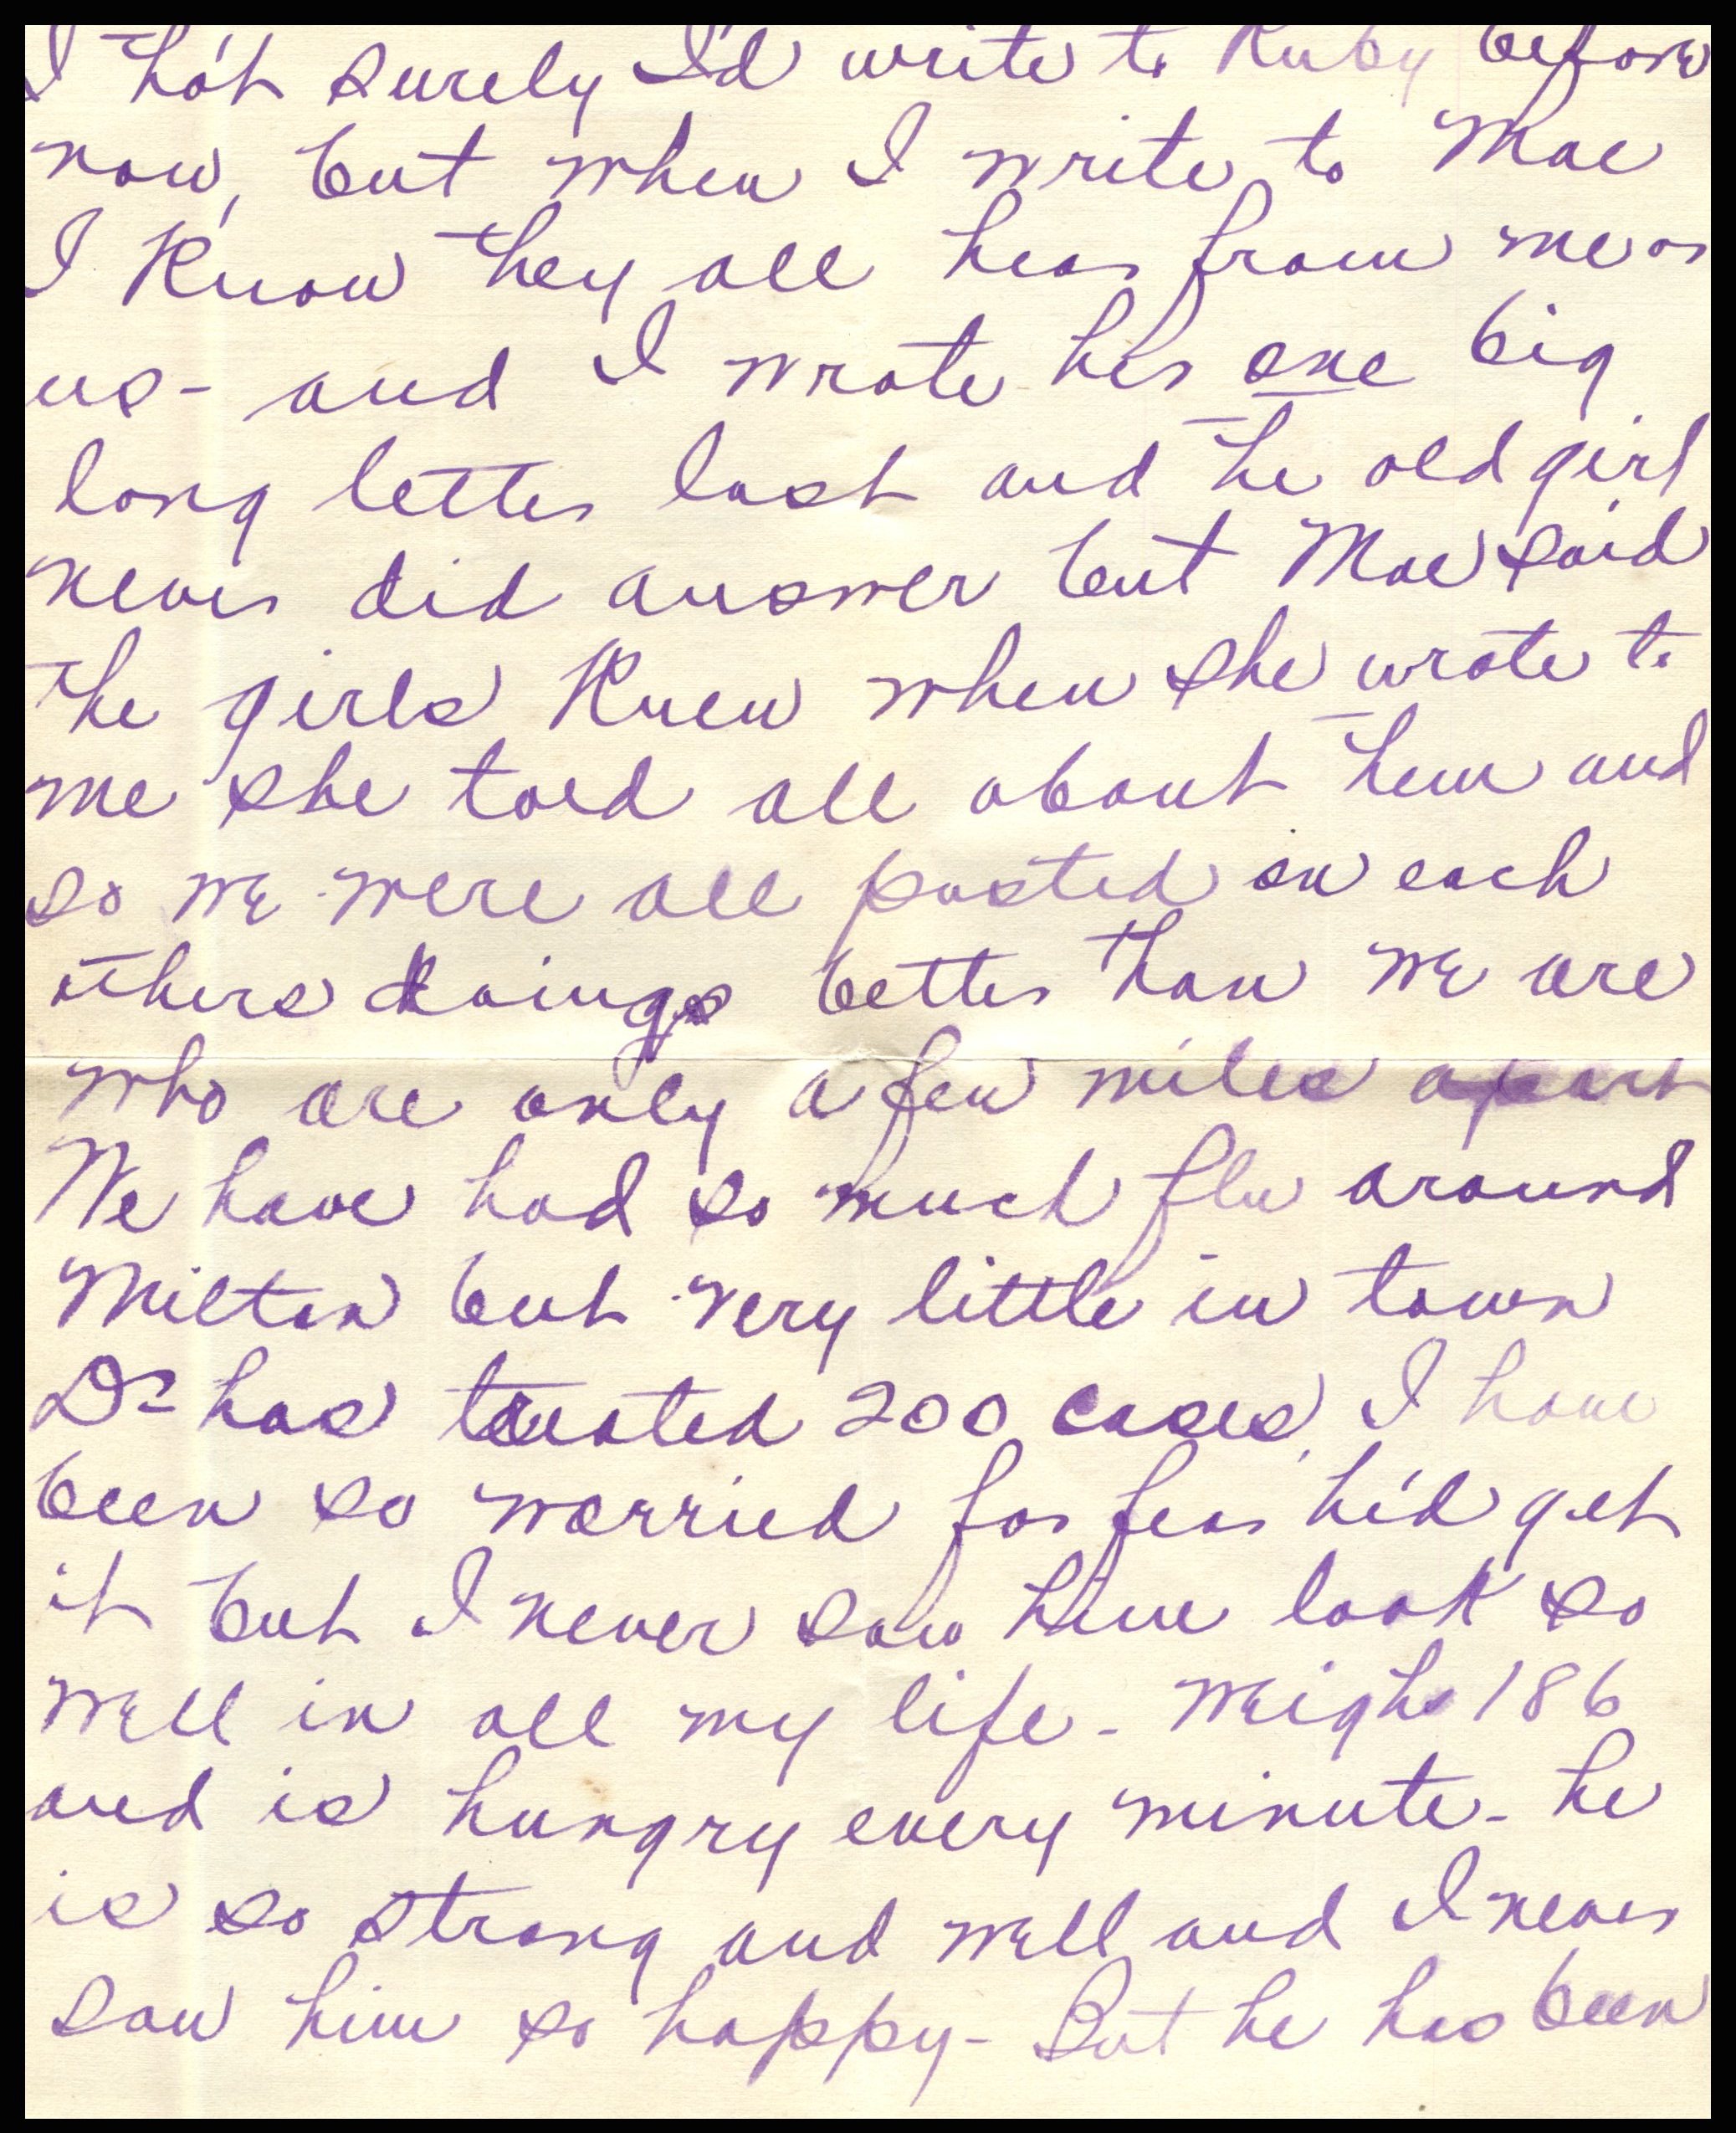 I tho't surely I'd write to Ruby before
now, but when I write to Mae
I Know they all hear from me or
us - and I wrote her one big
long letter last and the old girl
never did answer but Mae said
the girls Knew when she wrote to
me she told all about them and
so we were all posted on each
others doings better than we are
who are only a few miles apart
We have had so much flu around
Milton but very little in town
Dr has treated 200 cases, I have
been so worried for fear he'd get
it but I never saw him look so
well in all my life - Weighs 186
and is hungry every minute - he
is so strong and well and I never
saw him so happy - But he has been